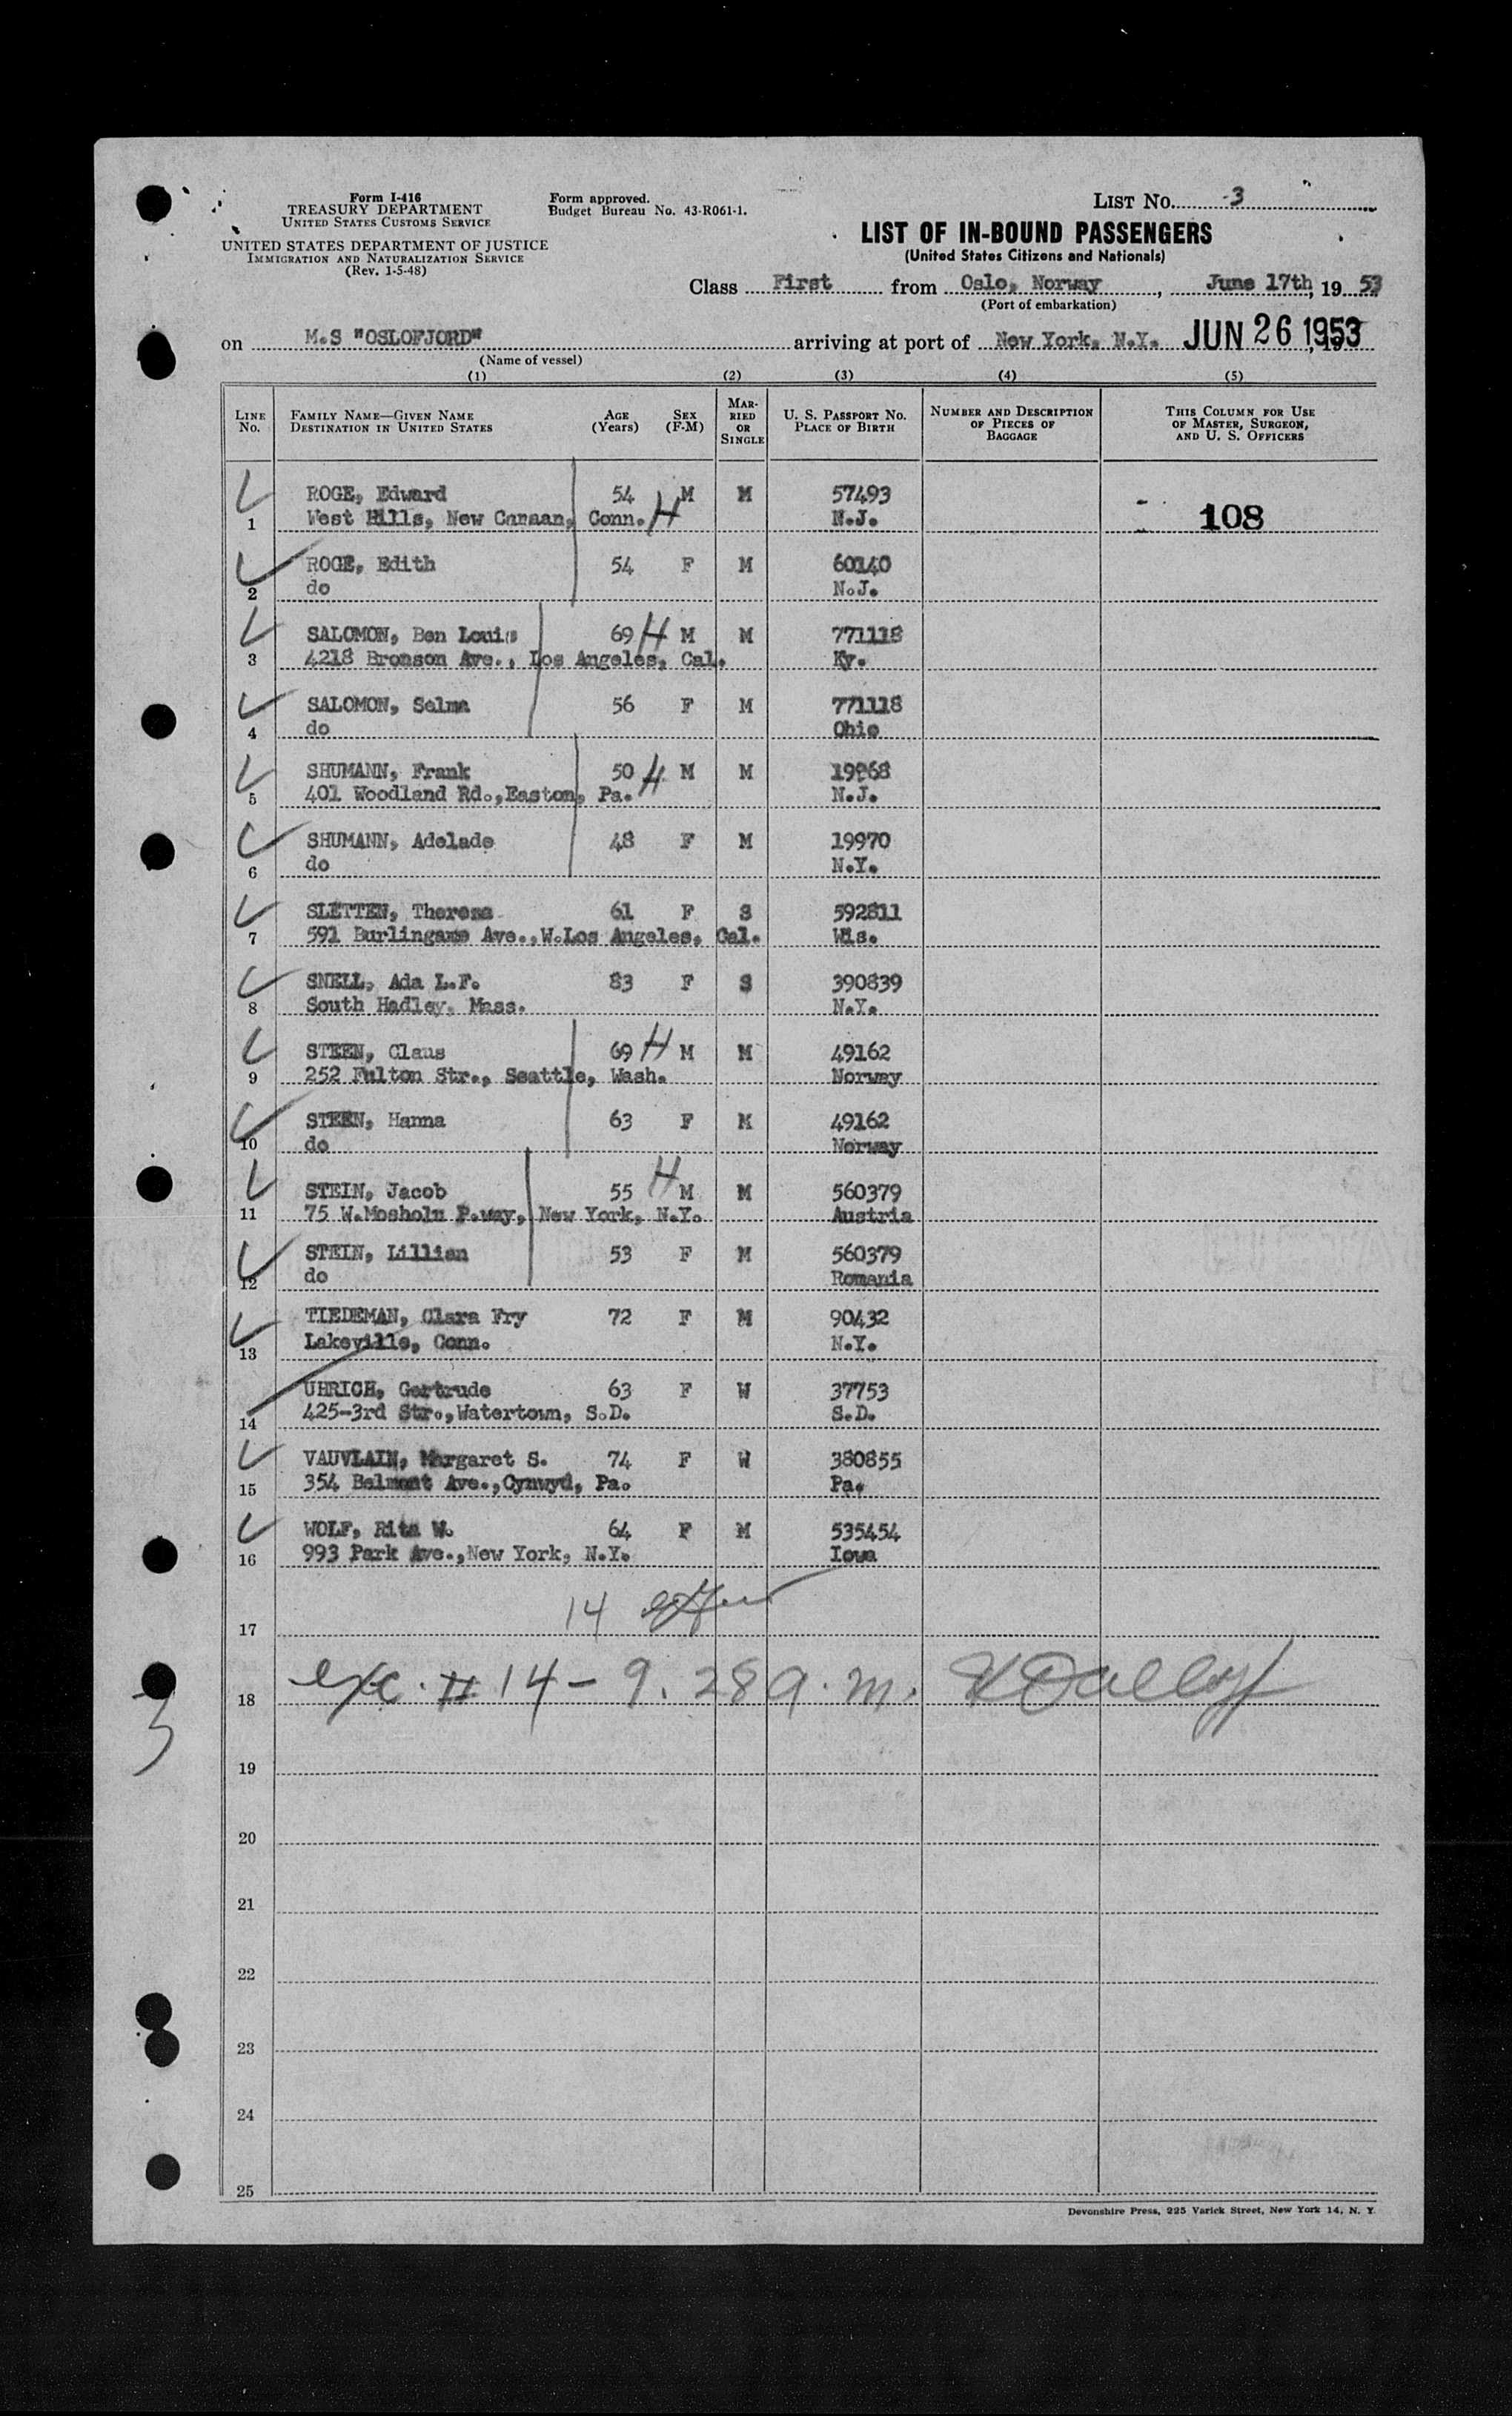 Form I-416
TREASURY DEPARTMENT
UNITED STATES CUSTOMS SERVICE
UNITED STATES DEPARTMENT OF JUSTICE
IMMIGRATION AND NATURALIZATION SERVICE
(Rev. 1-5-48)
Form approved.
Budget Bureau No. 43-R061-1.
LIST No. 3
LIST OF IN-BOUND PASSENGERS
(United States Citizens and Nationals)
Class First from Oslo, Norway, June 17th, 1953
(Port of embarkation)
on M.S "OSLOFJORD" arriving at port of New York, N.Y. JUN 26 1953
(Name of vessel)
(1) (2) (3) (4) (5)
LINE No. FAMILY NAME—GIVEN NAME DESTINATION IN UNITED STATES AGE (Years) SEX (F-M) MARRIED OR SINGLE U. S. PASSPORT NO. PLACE OF BIRTH NUMBER AND DESCRIPTION OF PIECES OF BAGGAGE THIS COLUMN FOR USE OF MASTER, SURGEON, AND U. S. OFFICERS
ROGE, Edward 54 M M 57493
1 West Hills, New Canaan, Conn. H N.J. 108
ROGE, Edith 54 F M 60140
2 do N.J.
SALOMON, Ben Louis 69 H M M 771118
3 4218 Bronson Ave., Los Angeles, Cal. Ky.
SALOMON, Selma 56 F M 771118
4 do Ohio
SHUMANN, Frank 50 H M M 19968
5 401 Woodland Rd., Easton, Pa. N.J.
SHUMANN, Adelade 48 F M 19970
6 do N.Y.
SLETTEN, Theresa 61 F S 592811
7 591 Burlingame Ave., W.Los Angeles, Cal. Wis.
SNELL, Ada L.F. 83 F S 390839
8 South Hadley, Mass. N.Y.
STEEN, Claus 69 H M M 49162
9 252 Fulton Str., Seattle, Wash. Norway
STEEN, Hanna 63 F M 49162
10 do Norway
STEIN, Jacob 55 H M M 560379
11 75 W.Mosholu P.way, New York, N.Y. Austria
STEIN, Lillian 53 F M 560379
12 do Romania
TIEDEMAN, Clara Fry 72 F M 90432
13 Lakeville, Conn. N.Y.
UHRICH, Gertrude 63 F W 37753
14 425-3rd Str., Watertown, S.D. S.D.
VAUVLAIN, Margaret S. 74 F W 380855
15 354 Belmont Ave., Cynwyd, Pa. Pa.
WOLF, Rita W. 64 F M 535454
16 993 Park Ave., New York, N.Y. Iowa
17 14
18 exc. # 14 - 9.28 a.m.
19
20
21
22
23
24
25
Devonshire Press, 225 Varick Street, New York 14, N. Y.